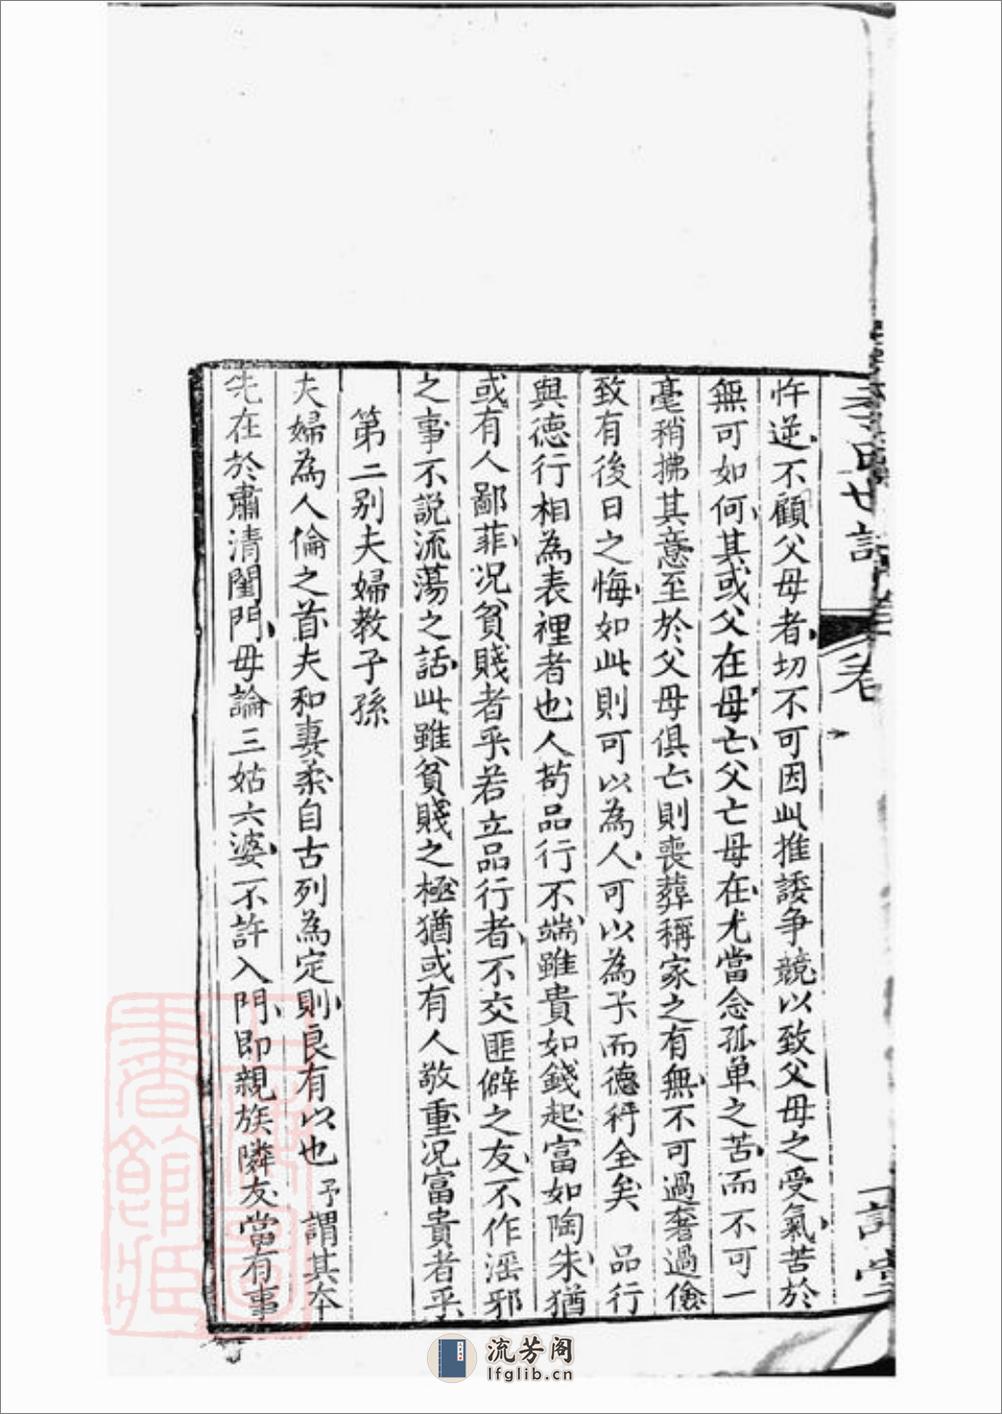 李氏世譜
卷
忤逆不顧父母者切不可因此推諉争競以致父母之受氣苦於
無可如何其或父在母亡父亡母在尤當念孤单之苦而不可一
毫稍拂其意至於父母俱亡則喪葬稱家之有無不可過奢過儉
致有後日之悔如此則可以為人可以為子而德行全矣 品行
與德行相為表裡者也人苟品行不端雖貴如錢起富如陶朱猶
或有人鄙菲况貧賤者乎若立品行者不交匪僻之友不作淫邪
之事不説流蕩之話此雖貧賤之極猶或有人敬重况富貴者乎
第二别夫婦教子孫
夫婦為人倫之首夫和妻柔自古列為定則良有以也予謂其本
先在於肅清閨門毋論三姑六婆不許入門即親族隣友當有事
流芳阁
lfglib.cn